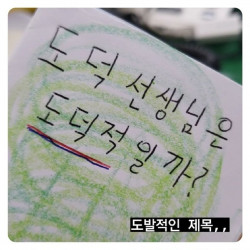 도덕선생님은
도덕적일까?
도발적인 제목,,